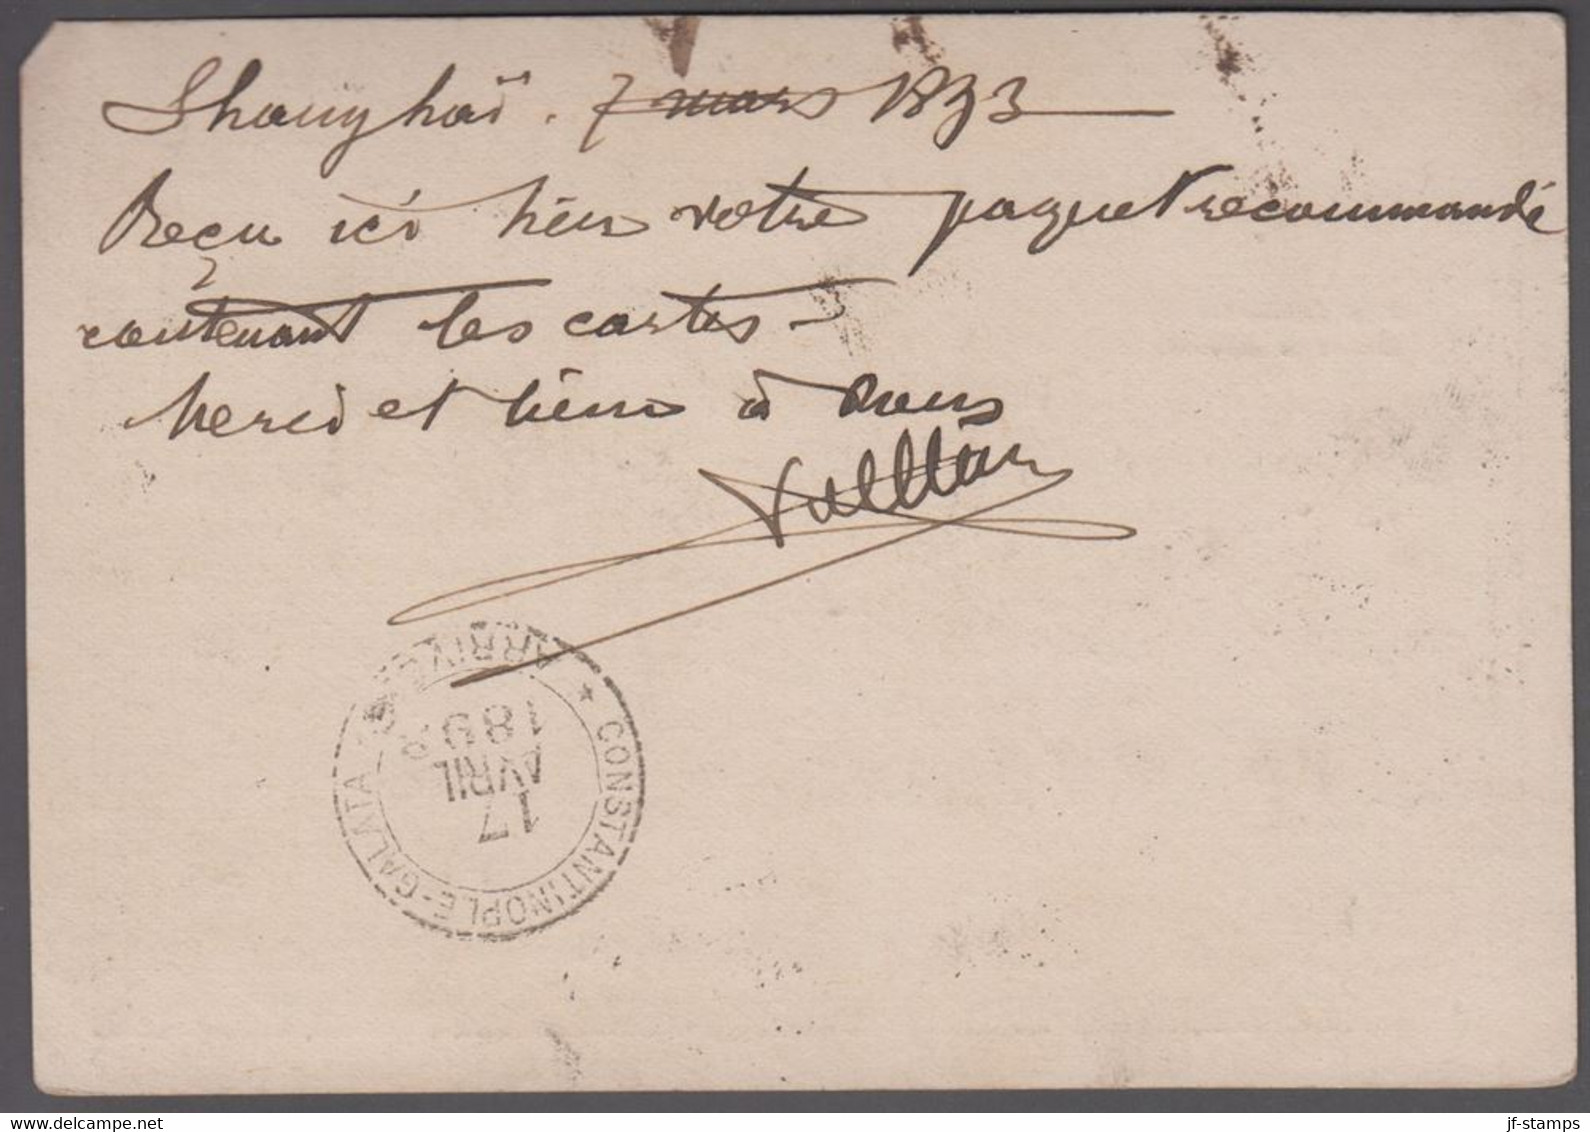 Shanghaï. 7 mars 1893
Reçu ici hier votre paquet recommandé
contenant les cartes -
Merci et bien à vous
CONSTANTINOPLE-GALATA
ARRIVÉE
17
AVRIL
189
jf-stamps